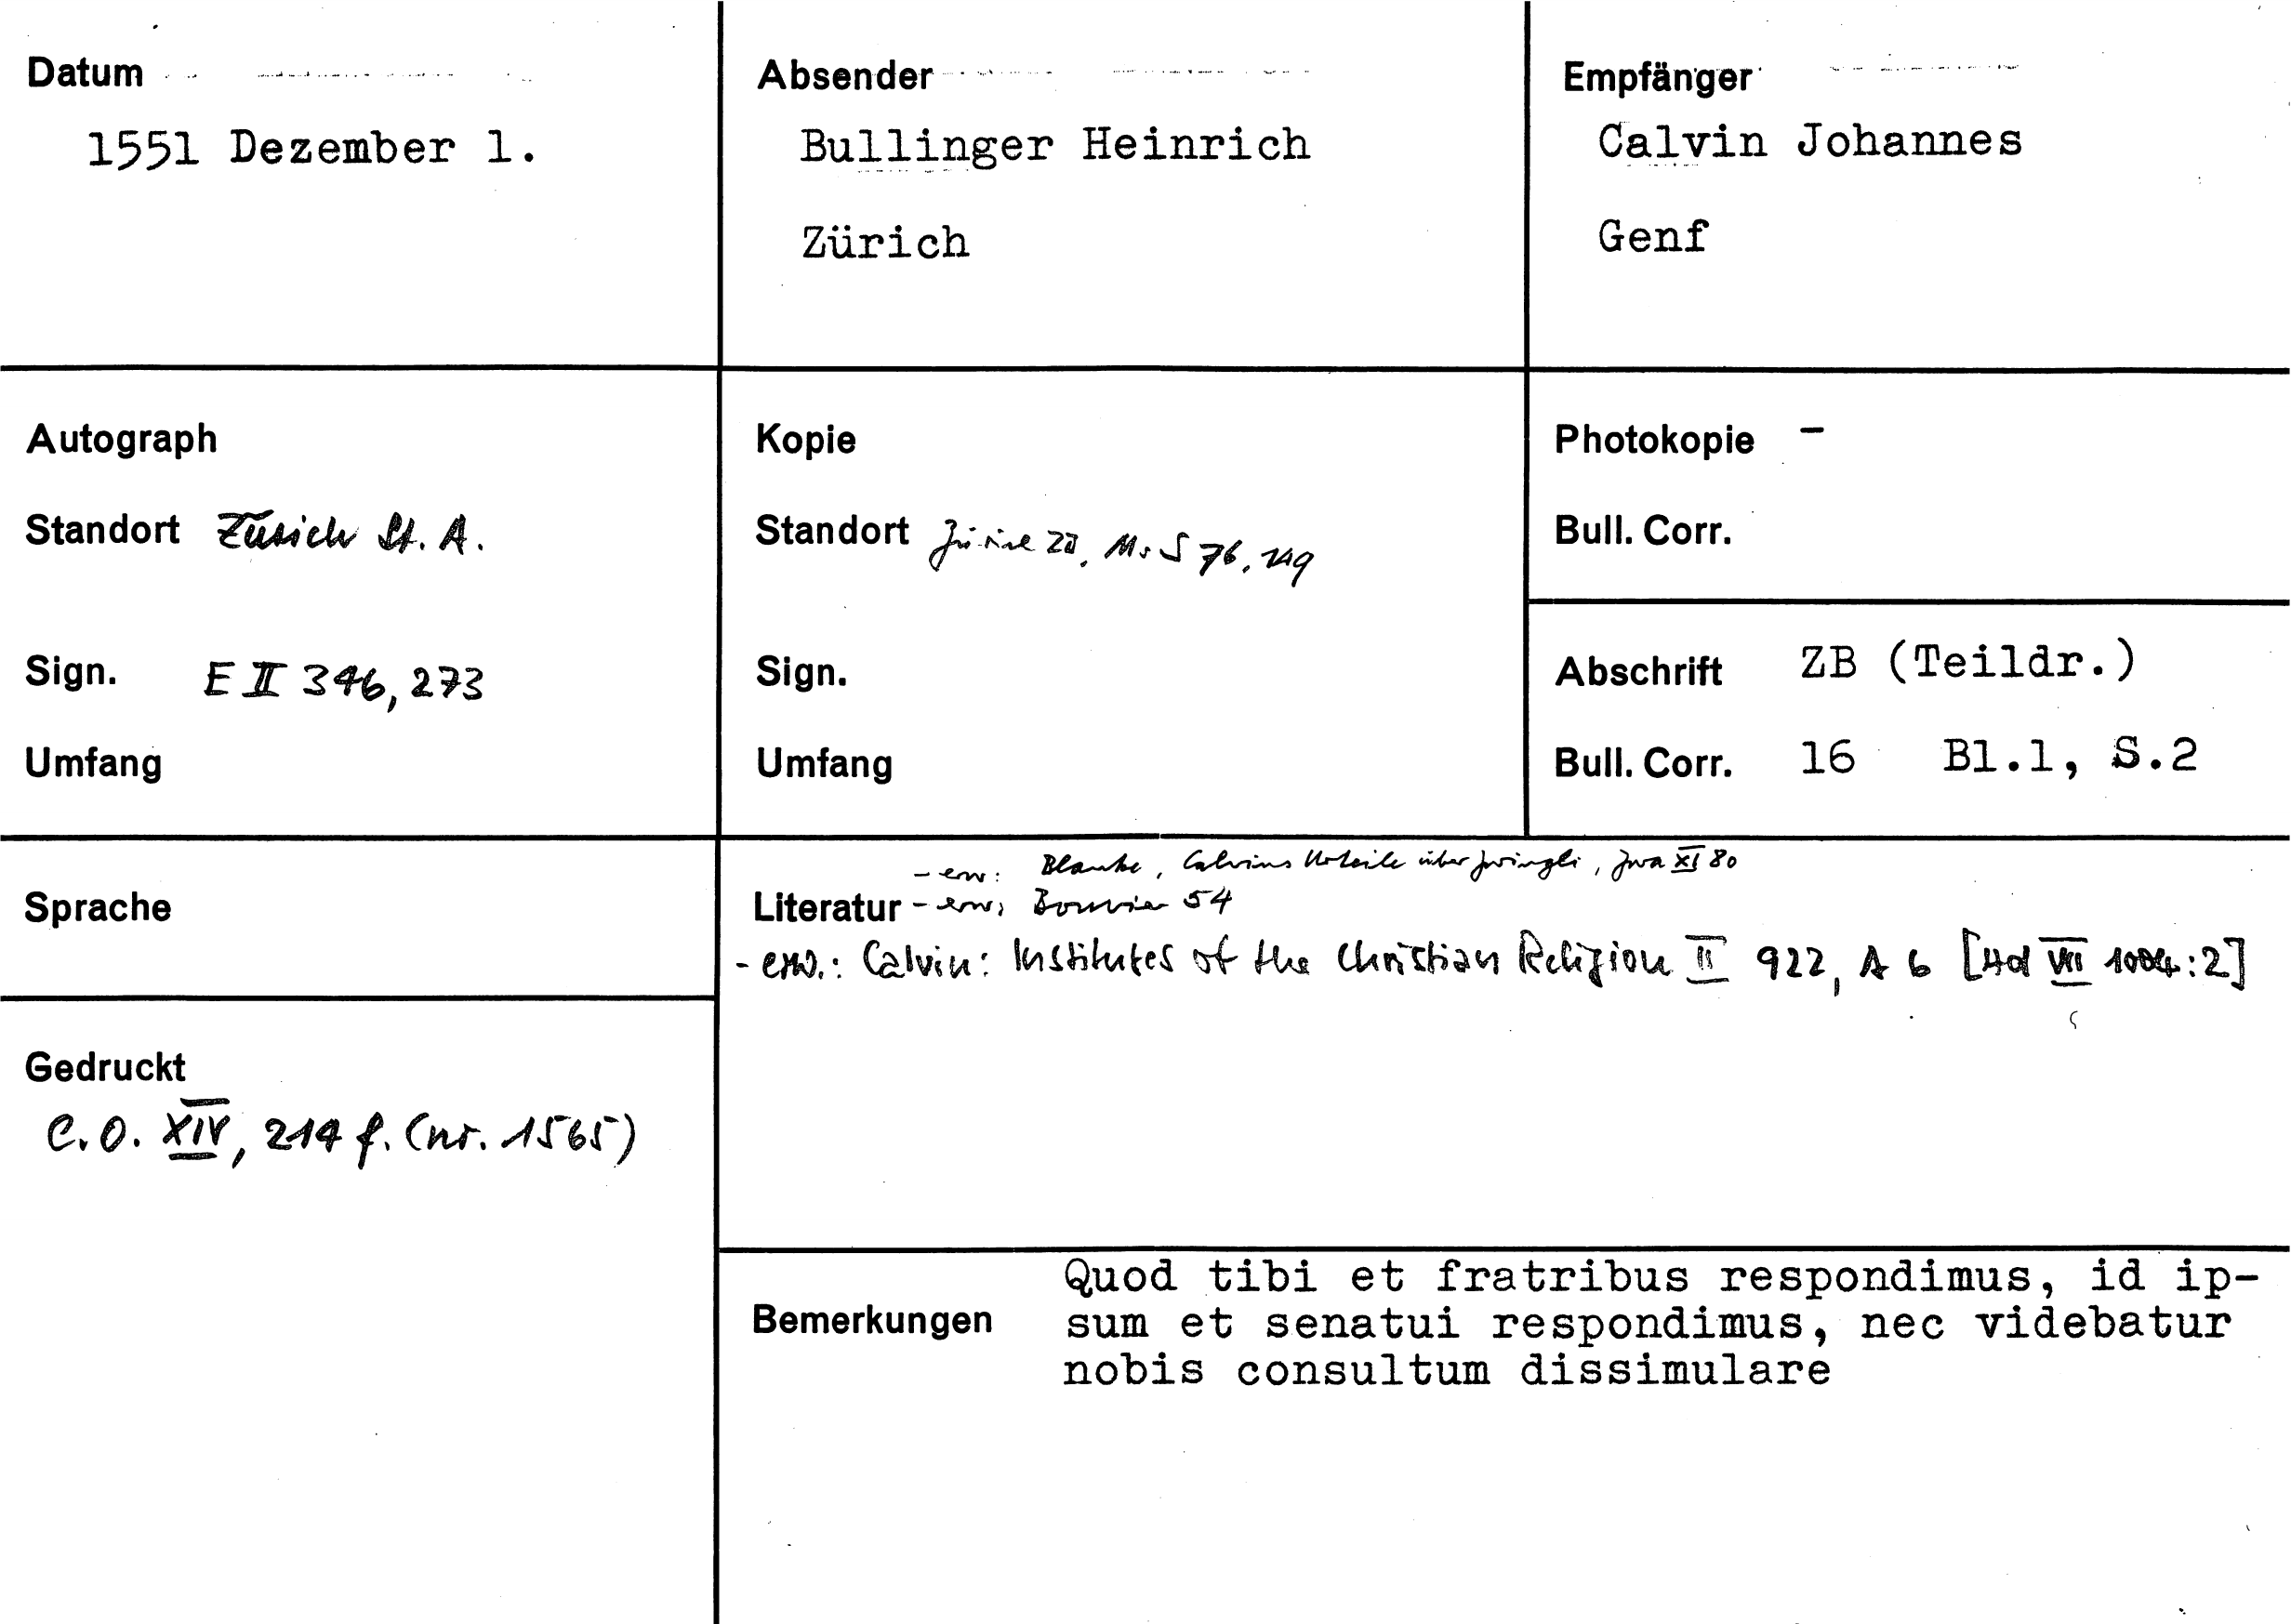 Datum
1551 Dezember 1.
Absender
Bullinger Heinrich
Zürich
Empfänger
Calvin Johannes
Genf
Autograph
Standort Zürich St. A.
Sign. E II 346, 273
Umfang
Kopie
Standort Zürich ZB, Ms S 76, 149
Sign.
Umfang
Photokopie -
Bull. Corr.
Abschrift ZB (Teildr.)
Bull. Corr. 16 Bl.1, S.2
Sprache
Gedruckt
C.O. XIV, 214 f. (nr. 1565)
- erw: Blanke, Calvins Urteile über Zwingli, Zwa XI 80
Literatur - erw: Bouvier 54
- erw.: Calvin: Institutes of the Christian Religion II 922, A 6 [HBd VIII 1004:2]
Bemerkungen
Quod tibi et fratribus respondimus, id ip-
sum et senatui respondimus, nec videbatur
nobis consultum dissimulare